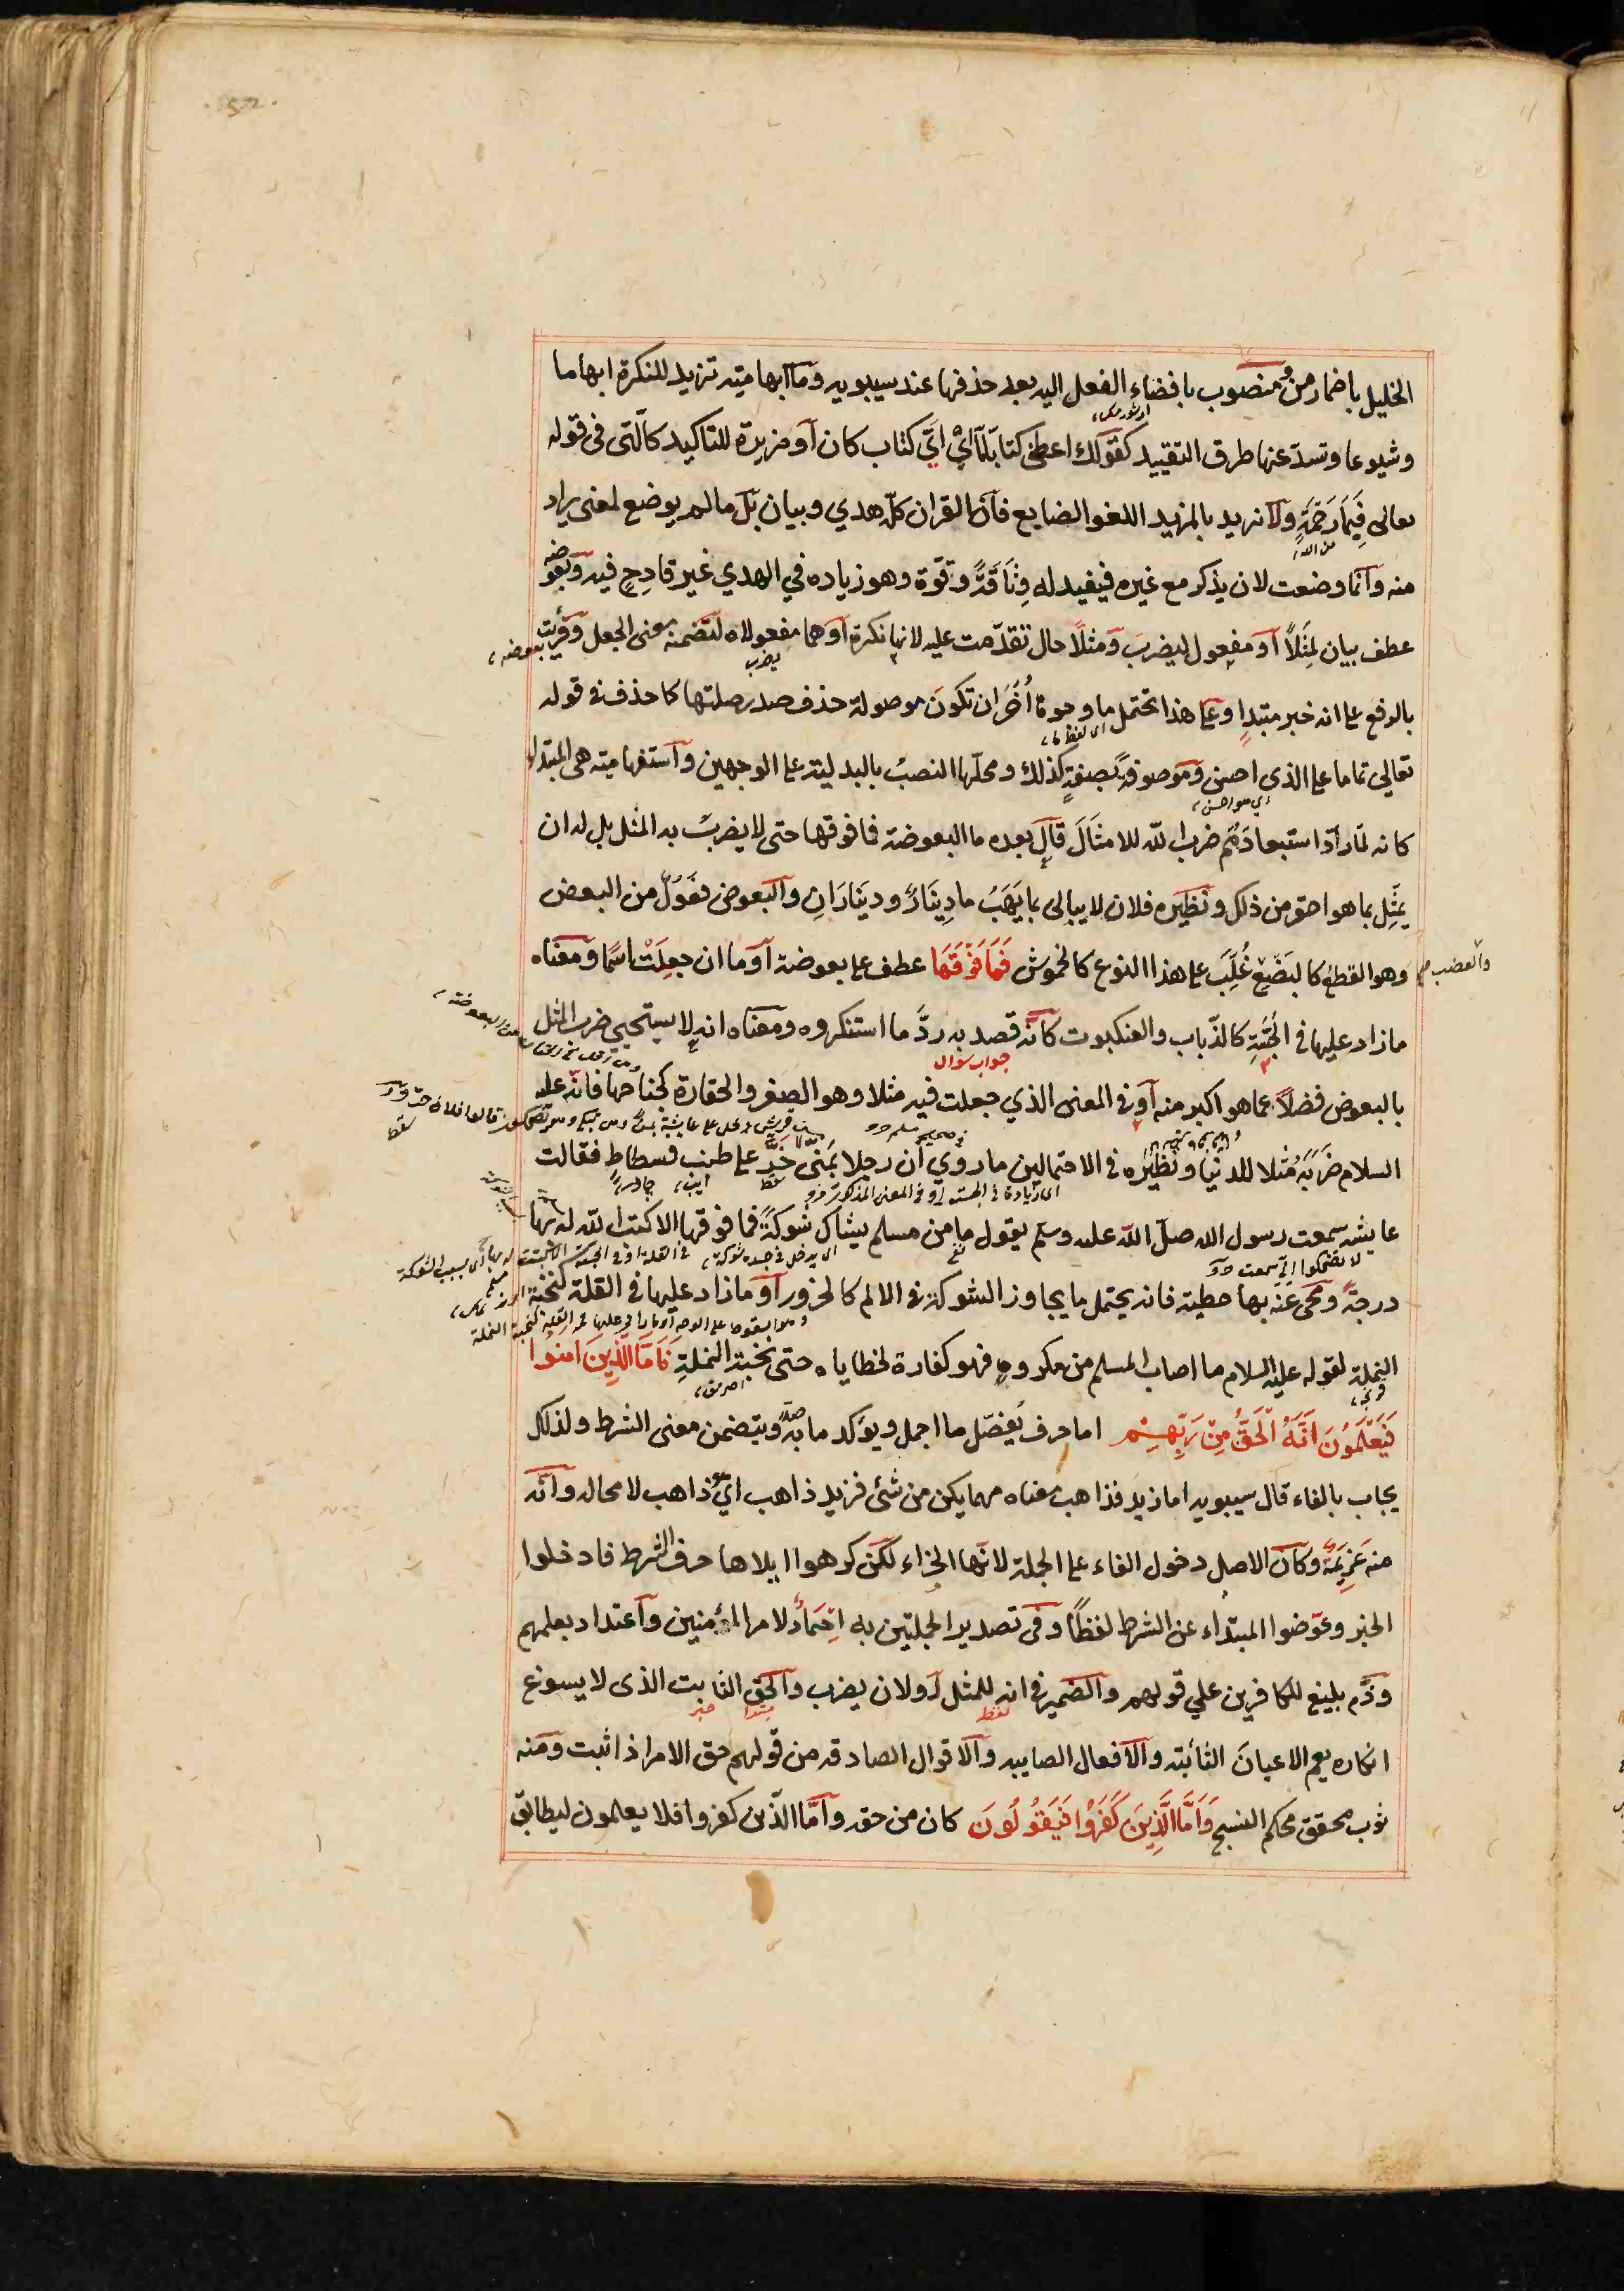 الخليل باضمار من ومنصوب بافضاء الفعل اليه بعد حذفها عند سيبويه وما ابهامية تزيد للنكرة ابهاما
وشيوعا وتسدّ عنها طرق التقييد كقولك اعطنى كتابا مّا اىْ اىّ كتاب كان او مزيدة للتاكيد كالّتى فى قوله
تعالى فَبِمَا رَحْمَةٍ ولا نريد بالمزيد اللغو الضايع فانّ القران كلّه هدي وبيان بل مالم يوضع لمعنى يراد
من الله
منه وانما وضعت لان يذكر مع غيره فيفيد له وِثَاقَةً وقوّة وهو زياده في الهدي غير قادحٍ فيه وبعوضه
عطف بيان لِمَثَلًا او مفعول ليضرب ومثلًا حال تقدّمت عليه لانها نكرة او هما مفعولاه لتضمنه معنى الجعل وقرئت
يضرب
بعوضه
بالرفع على انه خبر مبتدإ وعلى هذا تحتمل ما وجوها أُخَر ان تكونَ موصولة حذف صدر صلتها كما حذف فى قوله
اى لفظ ما
تعالي تماما على الذى احسن وموصوفةً بصفةٍ كذلك ومحلّها النصبُ بالبدلية على الوجهين واستفهامية هى المبتدا
اي هو احسن
كانه لمّا ردّ استبعادَهُم ضربَ الله للامثَالَ قال بعده ما البعوضة فما فوقها حتى لا يضربُ به المثل بل له ان
يمثِل بما هو احقر من ذلك ونظيره فلان لا يبالى بما يَهَبُ ما دِينَارٌ ودينَارَانِ والبعوض فَعُوْلٌ من البعض
وهو القطع كالبَضْعِ غُلِّبَ على هذا النوع كالخموش فَمَا فَوْقَهَا عطف على بعوضة او ما ان جعِلَتْ اسمًا ومعناه
والعضب
ما زاد عليها فى الجُثَّةِ كالذّباب والعنكبوت كانه قصد به ردَّ ما استنكروه ومعناه انه لا يستحيي ضرب المثل
جواب سؤال
بالبعوض فضلًا عما هو اكبر منه او فى المعنى الذي جعلت فيه مثلا وهو الصغر والحقارة كجناحها فانّه عليه
السلام ضَرَبَهُ مَثلا للدنيا ونظيْره فى الاحتمالين ما روي ان رجلا بمنى خَرَّ على طنب فسطاطٍ فقالت
عايشه سمعت رسول الله صلّى الله عليه وسلم يقول ما من مسلم يشاك شوكةً فما فوقها الا كتب الله له بها
لا تضحكوا انى سمعت
درجةً ومحى عَنْه بها خطيئة فانه يحتمل ما يجاوز الشوكة فى الالم كالخرور او ما زاد عليها فى القلّة كنخبة
النملة لقوله عليه السلام ما اصاب المسلم من مكروهٍ فهو كفارة لخطاياه حتى نخبة النملةِ فَاَمَّا الَّذِينَ امَنُوا
فَيَعْلَمُونَ اَنَّهُ الْحَقُّ مِنْ رَبِّهِمْ اما حرف يُفصّل ما اجمل ويؤكد ما به صدّر ويتضمن معنى الشرط ولذلك
يجاب بالفاء قال سيبويه اما زيد فذاهب معناه مهما يكن من شئ فزيد ذاهب اي هو ذاهب لا محاله وانّه
منه عَزِيمَةٌ وكان الاصل دخول الفاء على الجملة لانّها الجزاء لكن كرهوا ايلاها حرف الشرط فادخلوا
الخبر وعوّضوا المبتداء عن الشرط لفظًا وفى تصدير الجملتين به اِحمَادٌ لامر المؤمنين واعتداد بعلمهم
وذَّم بليغ للكافرين علي قولهم والضمير فى انه للمثل او لان يضرب والحق الثابت الذى لا يسوغ
لفظ
مبتدا
خبر
انكاره يعم الاعيان الثابتة والافعال الصايبه والاقوال الصادقه من قولهم حق الامر اذا ثبت ومنه
ثوب محقق محكم النسج وَاَمَّا الَّذِينَ كَفَرُوا فَيَقُولُونَ كان من حقه وامّا الذين كفروا فلا يعلمون ليطابق